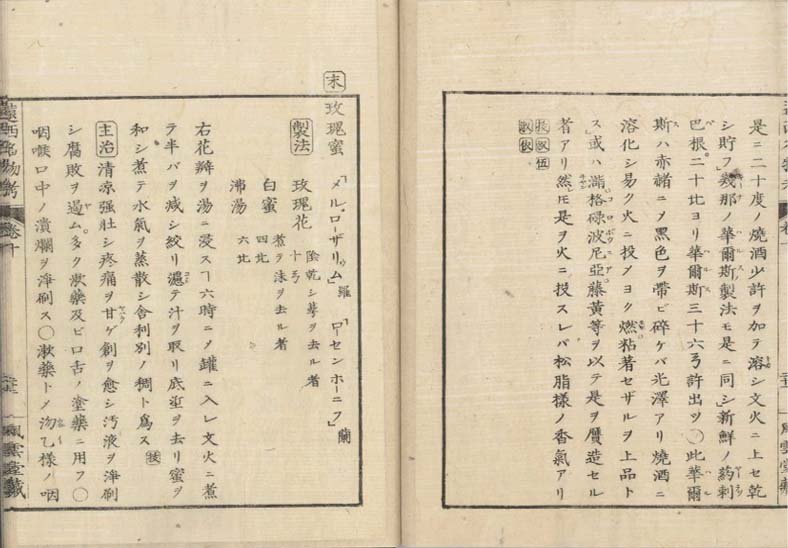 是ニ二十度ノ焼酒少許ヲ加テ溶シ文火ニ上セ乾
シ貯フ」幾那ノ華爾斯製法モ是ニ同シ」新鮮ノ葯刺
巴根。二十比ヨリ華爾斯三十六弓許出ツ〇此華爾
斯ハ赤褐ニメ黒色ヲ帯ビ砕ケバ光澤アリ焼酒ニ
溶化シ易ク火ニ投メヨク燃粘著セザルヲ上品ト
ス」或ハ瀉格碌波尼亞藤黄等ヲ以テ是ヲ贋造セル
者アリ然𪜈是ヲ火ニ投スレバ松脂様ノ香氣アリ
末 玫瑰蜜 「メル、ローザリゥム」羅 「ローセンホーニフ」蘭
製法 玫瑰花 十弓 陰乾シ萼ヲ去ル者
白蜜 四比 煮テ沫ヲ去ル者
沸湯 六比
右花瓣ヲ湯ニ浸スヿ六時ニメ罐ニ入レ文火ニ煮
テ半バヲ減シ絞リ濾テ汁ヲ取リ底垽ヲ去リ蜜ヲ
和シ煮テ水氣ヲ蒸散シ舎利別ノ稠ト為ス
主治 清凉強壮シ疼痛ヲ甘ゲ創ヲ愈シ汚液ヲ浄刷
シ腐敗ヲ遏ム。多ク漱薬及ビ口舌ノ塗薬ニ用フ〇
咽喉口中ノ潰爛ヲ浄刷ス〇漱薬トメ沕乙様ノ咽
遠西名物考 巻十 風雲堂蔵